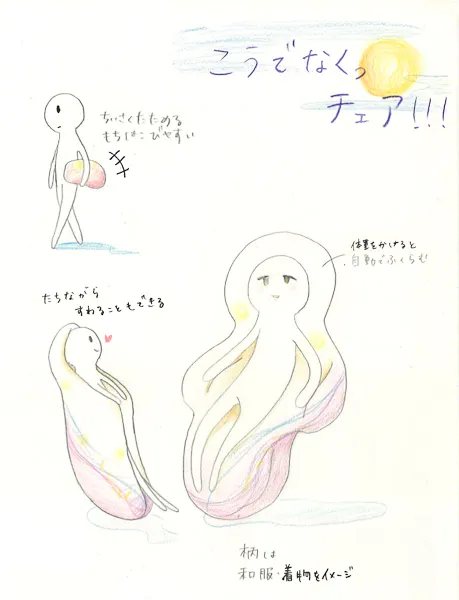 こうでなくっ
チェア!!!
ちいさくたためる
もちはこびやすい
体重をかけると
自動でふくらむ
たちながら
すわることもできる
柄は
和服・着物をイメージ